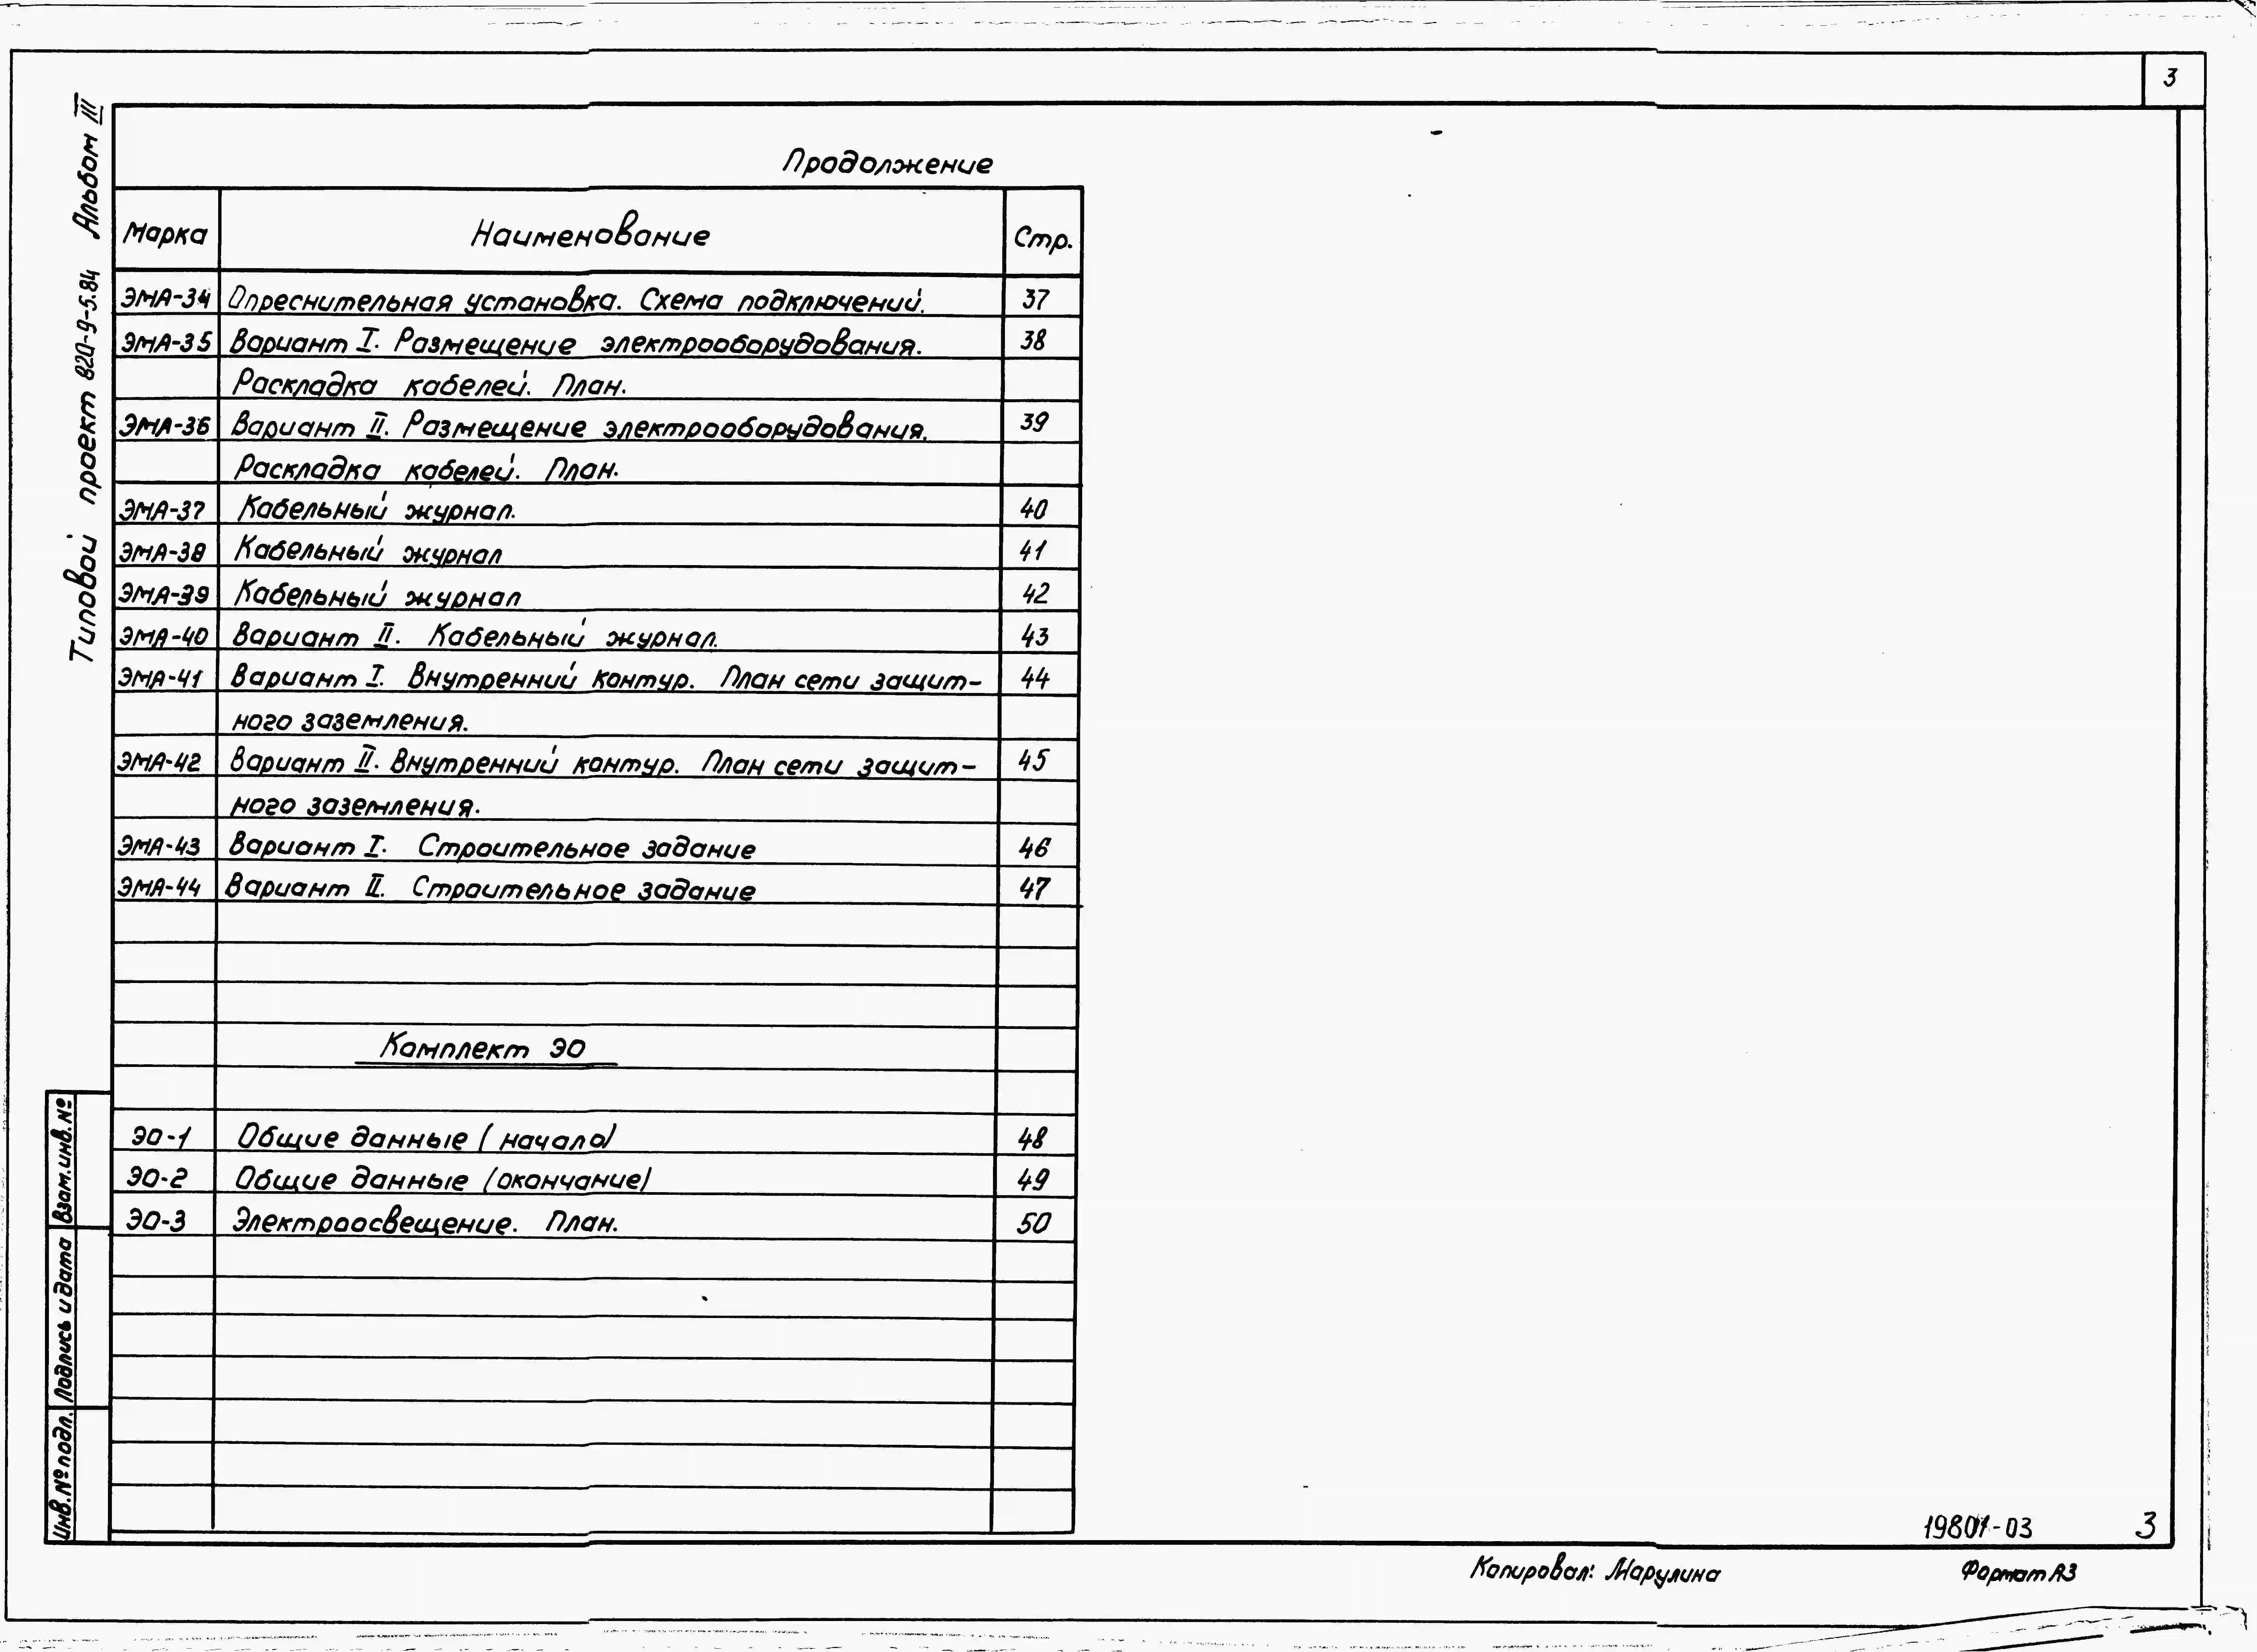 3
Типовой проект 820-9-5.84 Альбом III
Продолжение
Марка Наименование Стр.
ЭМА-34 Опреснительная установка. Схема подключений. 37
ЭМА-35 Вариант I. Размещение электрооборудования. 38
Раскладка кабелей. План.
ЭМА-36 Вариант II. Размещение электрооборудования. 39
Раскладка кабелей. План.
ЭМА-37 Кабельный журнал. 40
ЭМА-38 Кабельный журнал 41
ЭМА-39 Кабельный журнал 42
ЭМА-40 Вариант II. Кабельный журнал. 43
ЭМА-41 Вариант I. Внутренний контур. План сети защит- 44
ного заземления.
ЭМА-42 Вариант II. Внутренний контур. План сети защит- 45
ного заземления.
ЭМА-43 Вариант I. Строительное задание 46
ЭМА-44 Вариант II. Строительное задание 47
Комплект ЭО
ЭО-1 Общие данные (начало) 48
ЭО-2 Общие данные (окончание) 49
ЭО-3 Электроосвещение. План. 50
Взам.инв.№
Подпись и дата
Инв.№ подл.
19801-03 3
Копировал: Марулина Формат А3